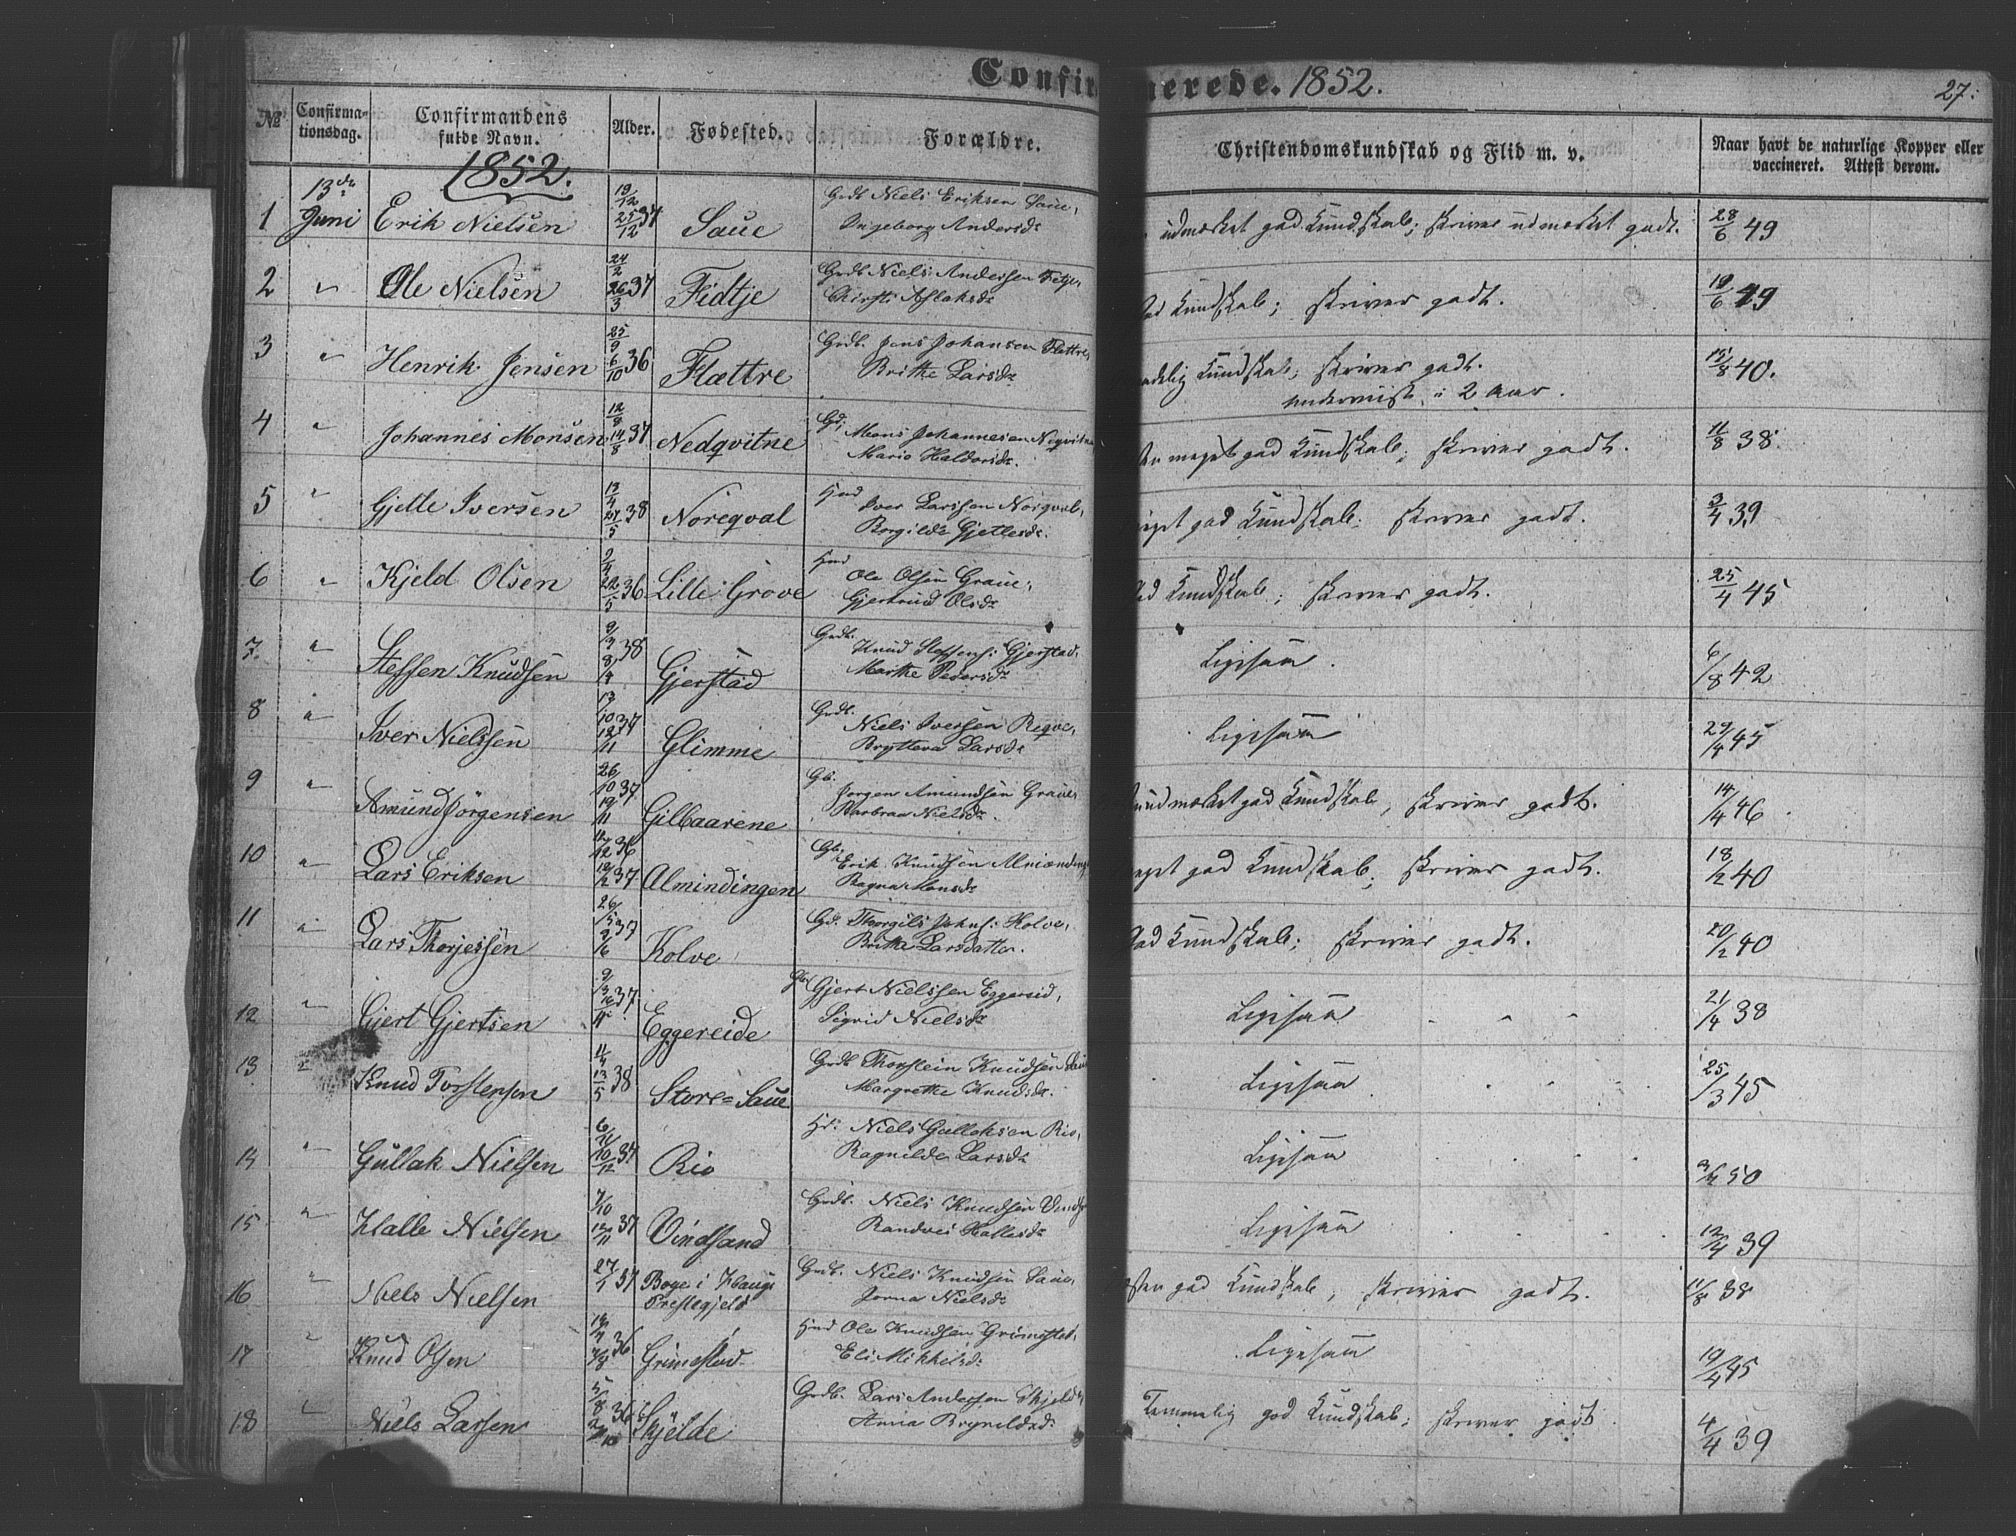 Confir
merede. 1852.
27.
№
Confirma-
tionsdag.
Confirmandens
fulde Navn.
Alder.
Fødested.
Forældre.
Christendomskundskab og Flid m. v.
Naar havt de naturlige Kopper eller
vaccineret. Attest derom.
1852.
1 13de Juni Erik Nielsen 19/12 25/12 37 Saue Grdb Niels Eriksen Saue, Ingeborg Andersdr udmærket god Kundskab; skriver udmærket godt. 28/6 49
2 " Ole Nielsen 24/2 26/3 37 Fidtje Grdb Niels Andersen Fitje, Christi Aslaksdr Kundskab; skriver godt. 19/6 49
3 " Henrik Jensen 25/9 6/10 36 Flættre Grdb. Jens Johansen Flettre, Britke Larsdr Kundskab, skriver godt. underviist i 2 Aar. 15/8 40.
4 " Johannes Monsen 12/8 14/8 37 Nedqvitne Gd, Mons Johannesen Neqvitne Maria Haldorsdr. meget god Kundskab; skriver godt. 11/8 38.
5 " Gjelle Iversen 13/4 27/5 38 Noreqval Hmd Iver Larssen Norqval, Borgilda Gjetlesdr. god Kundskab; skriver godt. 3/4 39
6 " Kjeld Olsen 2/4 22/5 36 Lille Grove Hmd Ole Olsen Graue, Gjertrud Olsdr Kundskab; skriver godt. 25/4 45
7. " Steffen Knudsen 9/3 8/4 38 Gjerstad Grdb. Knud Steffens: Gjerstad, Marthe Pedersdr Ligesaa. 6/8 42
8 " Iver Nielssen 13/10 12/11 37 Glimme Grdb. Niels Iversen Reqve, Bryteva Larsdr Ligesaa 29/4 45
9 " Amund Jörgensen 26/10 19/11 37 Gilbaarene Gb. Jorgen Amundsen Graue, Barbraa Nielsdr. udmærket god Kundskab, skriver godt. 14/4 46
10 " Lars Eriksen 12 36 12/2 37 Almindingen Gb. Erik Knudsen Ragna Monsdr god Kundskab; skriver godt. 18/2 40
11 " Lars Thorjessen 26/5 2/6 37 Kolve Gd. Thorgils Johns: Kolve, Britke Larsdatter. Kundskab; skriver godt. 20/2 40
12 " Gjert Gjertsen 2/3 37. Eggereide Gb. Gjert Nielssen Eggereid, Sigrid Nielsdr Ligesaa " " " 21/4 38
13 " Knud Torstensen 11/4 13/5 38 Store=Saue Grdb Thorstein Knudsen Margrethe Knudsdr. Ligesaa 25/3 45
14 " Gullak Nielsen 6/11 10/12 37 Rio Hd. Niels Gullaksen Rio, Ragnilda Larsdr Ligesaa 50
15 " Halle Nielsen 7/10 12/11 37 Vindsand Grdb. Niels Knudsen Randvei Hallesdr Ligesaa 12/4 39
16 " Niels Nielsen 27/1 37 Boge i Haugs Prestegjeld Grdb. Niels Knudsen Saue, Jorna Nielsdr god Kundskab, skriver godt. 11/8 38
17 " Knud Olsen 36 Grimestad Hmd Ole Knudsen Grimestad, Eli Mikkelsdr Ligesaa 19/4 45
18 " Niels Larsen 5/8 36 Skjelde Grdb. Lars Andersen Skjelde, Anna Brynildsdr Temmelig god Kundskab; skriver godt. 4/4 39